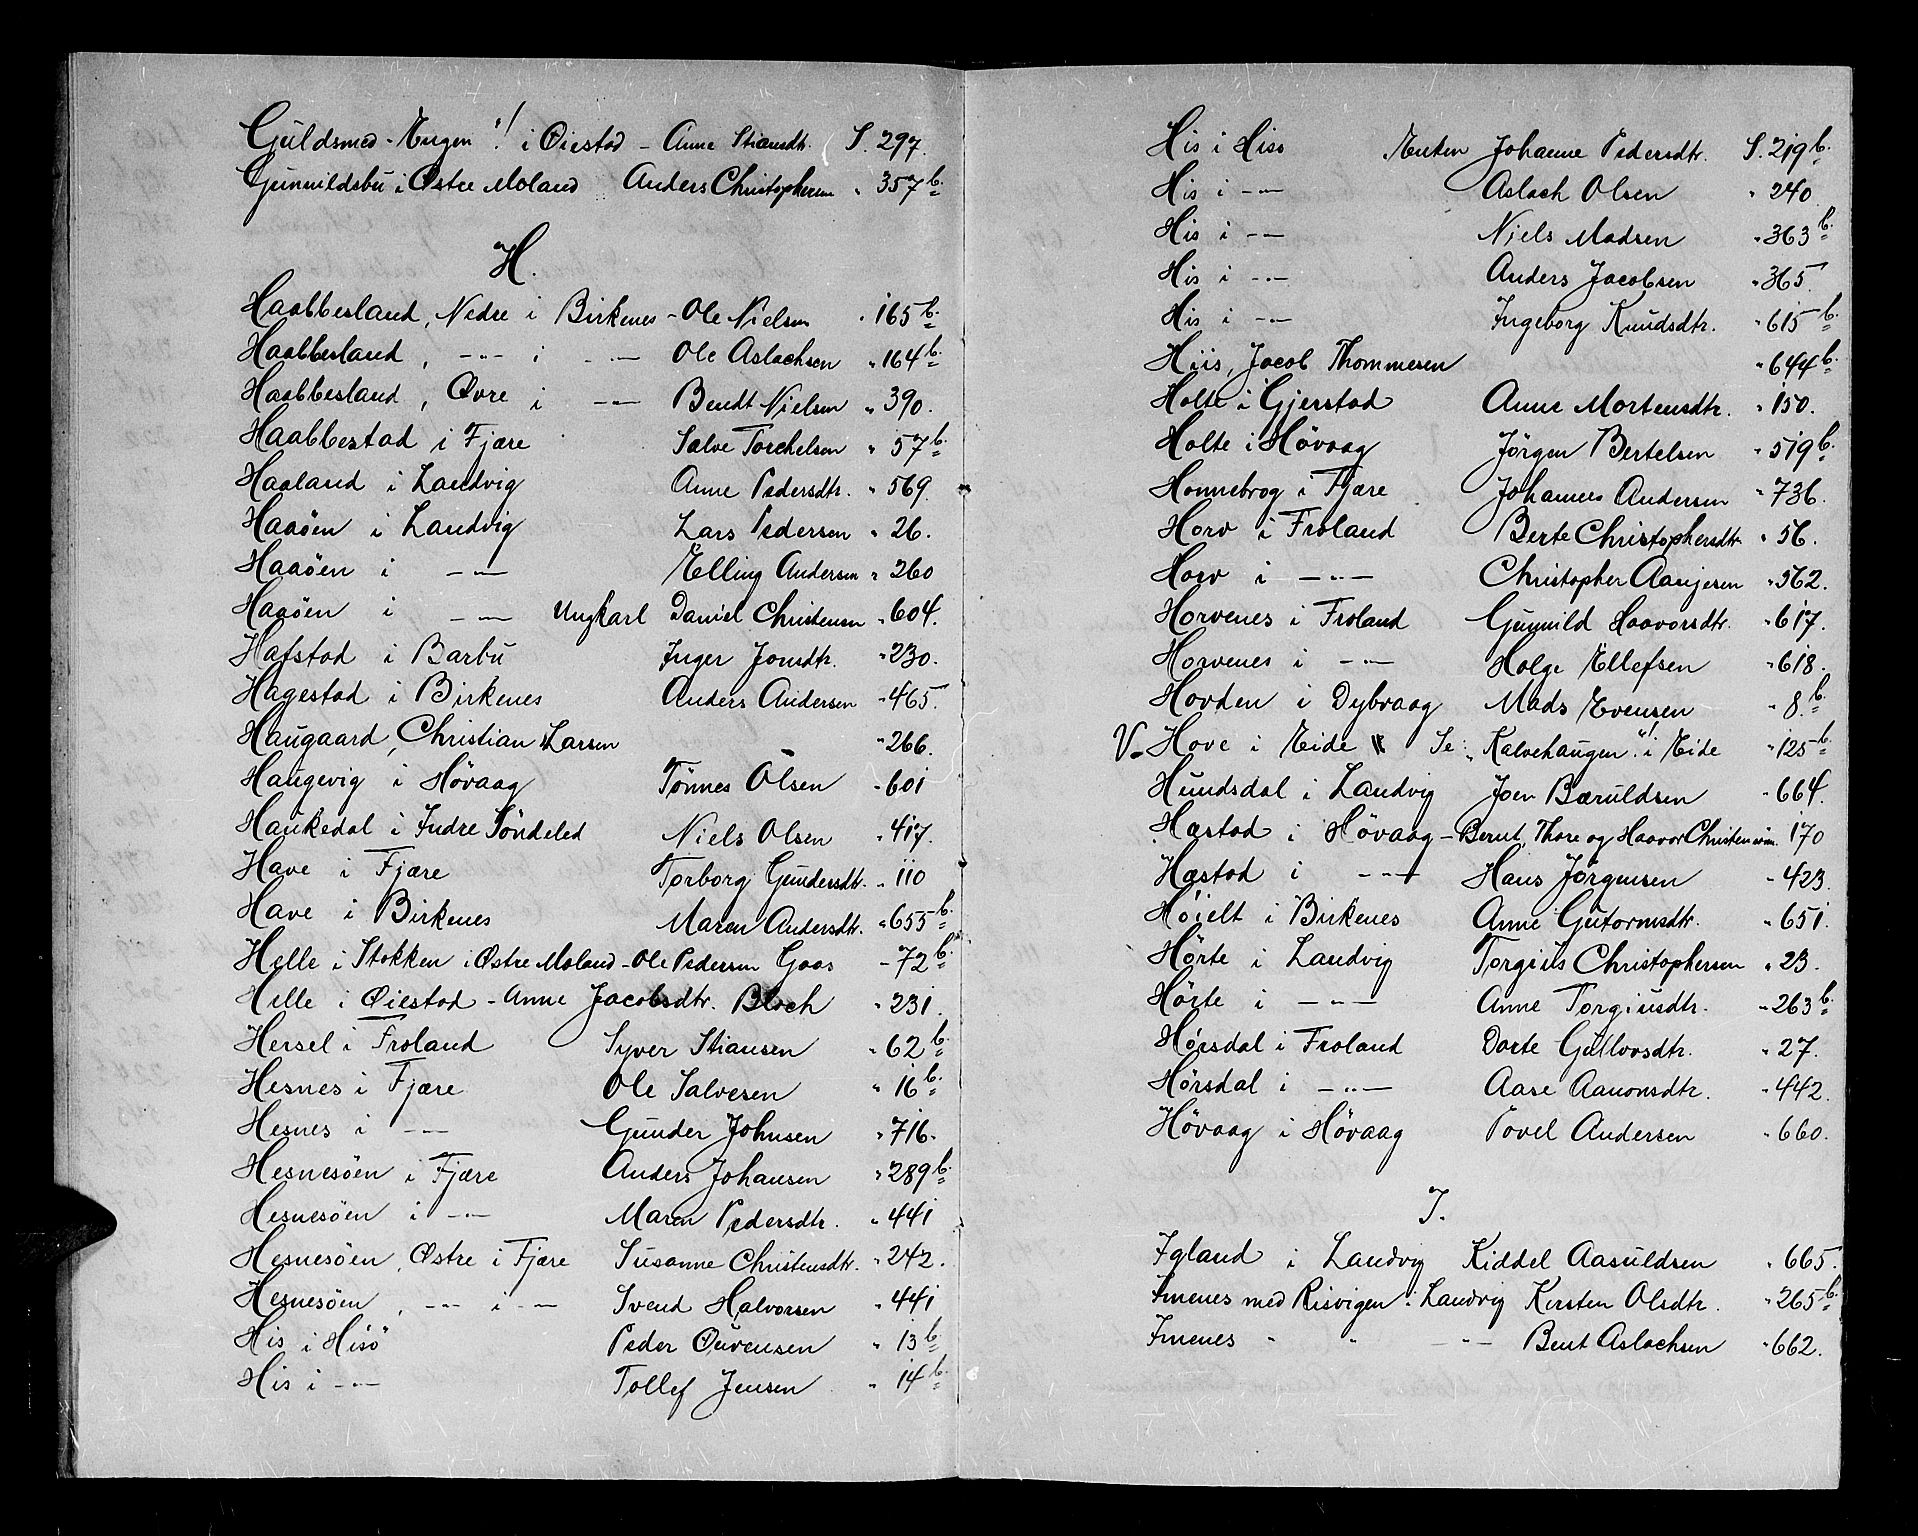 Guldsmed-Engen "! i Øiestad - Anne Stiansdtr. S. 297.
Gunnildsbu i Østre Moland Anders Christophersen " 357 b.
H.
Haabbesland, Nedre i Birkenes - Ole Nielsen " 165 b.
Haabbesland, -"- i -"- Ole Aslachsen " 164 b.
Haabbesland, Øvre i -"- Bendt Nielsen " 390.
Haabbestad i Fjære Salve Torchelsen " 57 b.
Haaland i Landvig Anne Pedersdtr. " 569.
Haaöen i Landvig Lars Pedersen " 26.
Haaöen i -"- Elling Andersen " 260
Haaöen i -"- Ungkarl Daniel Christensen " 604.
Hafstad i Barbu Inger Jonsdtr. " 230.
Hagestad i Birkenes Anders Andersen " 465.
Haugaard, Christian Larsen " 266.
Haugevig i Hövaag Tönnes Olsen " 601
Haukedal i Indre Söndeled Niels Olsen " 417.
Have i Fjære Torborg Gundersdtr. " 110
Have i Birkenes Maren Andersdtr. " 655 b.
Helle i Stokken i Østre Moland - Ole Pedersen Goos - 72 b.
Helle i Øiestad - Anne Jacobsdtr. Bloch " 231.
Hersel i Froland Syver Stiansen " 62 b.
Hesnes i Fjære Ole Salvesen " 16 b.
Hesnes i -"- Gunder Johnsen " 716.
Hesnesöen i Fjære Anders Johansen " 289 b.
Hesnesöen i -"- Maren Pedersdtr. " 441
Hesnesöen, Østre i Fjære Susanne Christensdtr. " 242.
Hesnesöen, -"- i -"- Svend Halvorsen " 441
His i Hisö Peder Ouvensen " 13 b.
His i -"- Tollef Jensen " 14 b.
His i Hisö Enken Johanne Pedersdtr. S. 219 b.
His i -"- Aslach Olsen " 240
His i -"- Niels Madsen " 363 b.
His i -"- Anders Jacobsen " 365.
His i -"- Ingeborg Knudsdtr. " 615 b.
Hiis, Jacob Thommesen " 644 b.
Holte i Gjerstad Anne Mortensdtr. " 150.
Holte i Hövaag Jörgen Bertelsen " 519 b.
Honnebrog i Fjære Johannes Andersen " 736.
Horv i Froland Berte Christophersdtr. " 56.
Horv i -"- Christopher Aanjesen " 562.
Horvenes i Froland Gunnild Haavorsdtr. " 617.
Horvenes i -"- Holge Ellefsen " 618.
Hovden i Dybvaag Mads Evensen " 8 b.
V. Hove i Eide Se: "Kalvehaugen"! i Eide " 125 b.
Hundsdal i Landvig Joen Bæruldsen " 664.
Hæstad i Hövaag - Bernt, Thore og Haavor Christensen. 170
Hæstad i -"- Hans Jörgensen " 423.
Höielt i Birkenes Anne Gutormsdtr. " 651.
Hörte i Landvig Torgius Christophersen " 23.
Hörte i -"- Anne Torgiusdtr. " 263 b.
Hörsdal i Froland Dorte Gullvosdtr. " 27.
Hörsdal i -"- Aase Aanonsdtr. " 442.
Hövaag i Hövaag Povel Andersen " 660.
I.
Igland i Landvig Kiddel Aasuldsen " 665.
Imenes med Risvigen i Landvig Kirsten Olsdtr. " 265 b.
Imenes " " -"- Bent Aslachsen " 662.